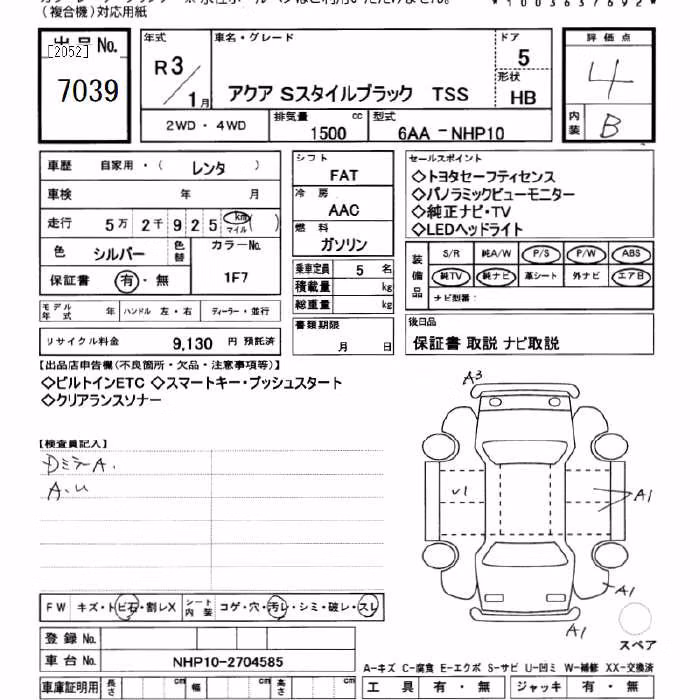 (複合機)対応用紙
*1003637692*
出品No.
[2052]
7039
年式
R3/1月
車名・グレード
アクア Sスタイルブラック TSS
ドア
5
形状
HB
評価点
4
内装
B
2WD・4WD
排気量 1500 cc
型式 6AA-NHP10
車歴 自家用・( レンタ )
車検 年 月
走行 5万2千925 km マイル ( )
色 シルバー 色替 カラーNo. 1F7
保証書 有・無
モデル年式 年 ハンドル 左・右 ディーラー・並行
リサイクル料金 9,130 円 預託済
シフト
FAT
冷房
AAC
燃料
ガソリン
乗車定員 5 名
積載量 kg
総重量 kg
書類期限
月 日
セールスポイント
◇トヨタセーフティセンス
◇パノラミックビューモニター
◇純正ナビ・TV
◇LEDヘッドライト
装備品
S/R 純A/W P/S P/W ABS
純TV 純ナビ 革シート 外ナビ エアB
ナビ型番:
後日品
保証書 取説 ナビ取説
【出品店申告欄(不良箇所・欠品・注意事項等)】
◇ビルトインETC ◇スマートキー・プッシュスタート
◇クリアランスソナー
【検査員記入】
DミラーA.
A.U
A3
V1
A1
A1
A1
スペア
FW キズ・トビ石・割レX シート内装 コゲ・穴・汚レ・シミ・破レ・スレ
登録No.
車台No. NHP10-2704585
車庫証明用 長さ cm 幅 cm 高さ cm
A-キズ C-腐食 E-エクボ S-サビ U-凹ミ W-補修 XX-交換済
工具 有・無 ジャッキ 有・無